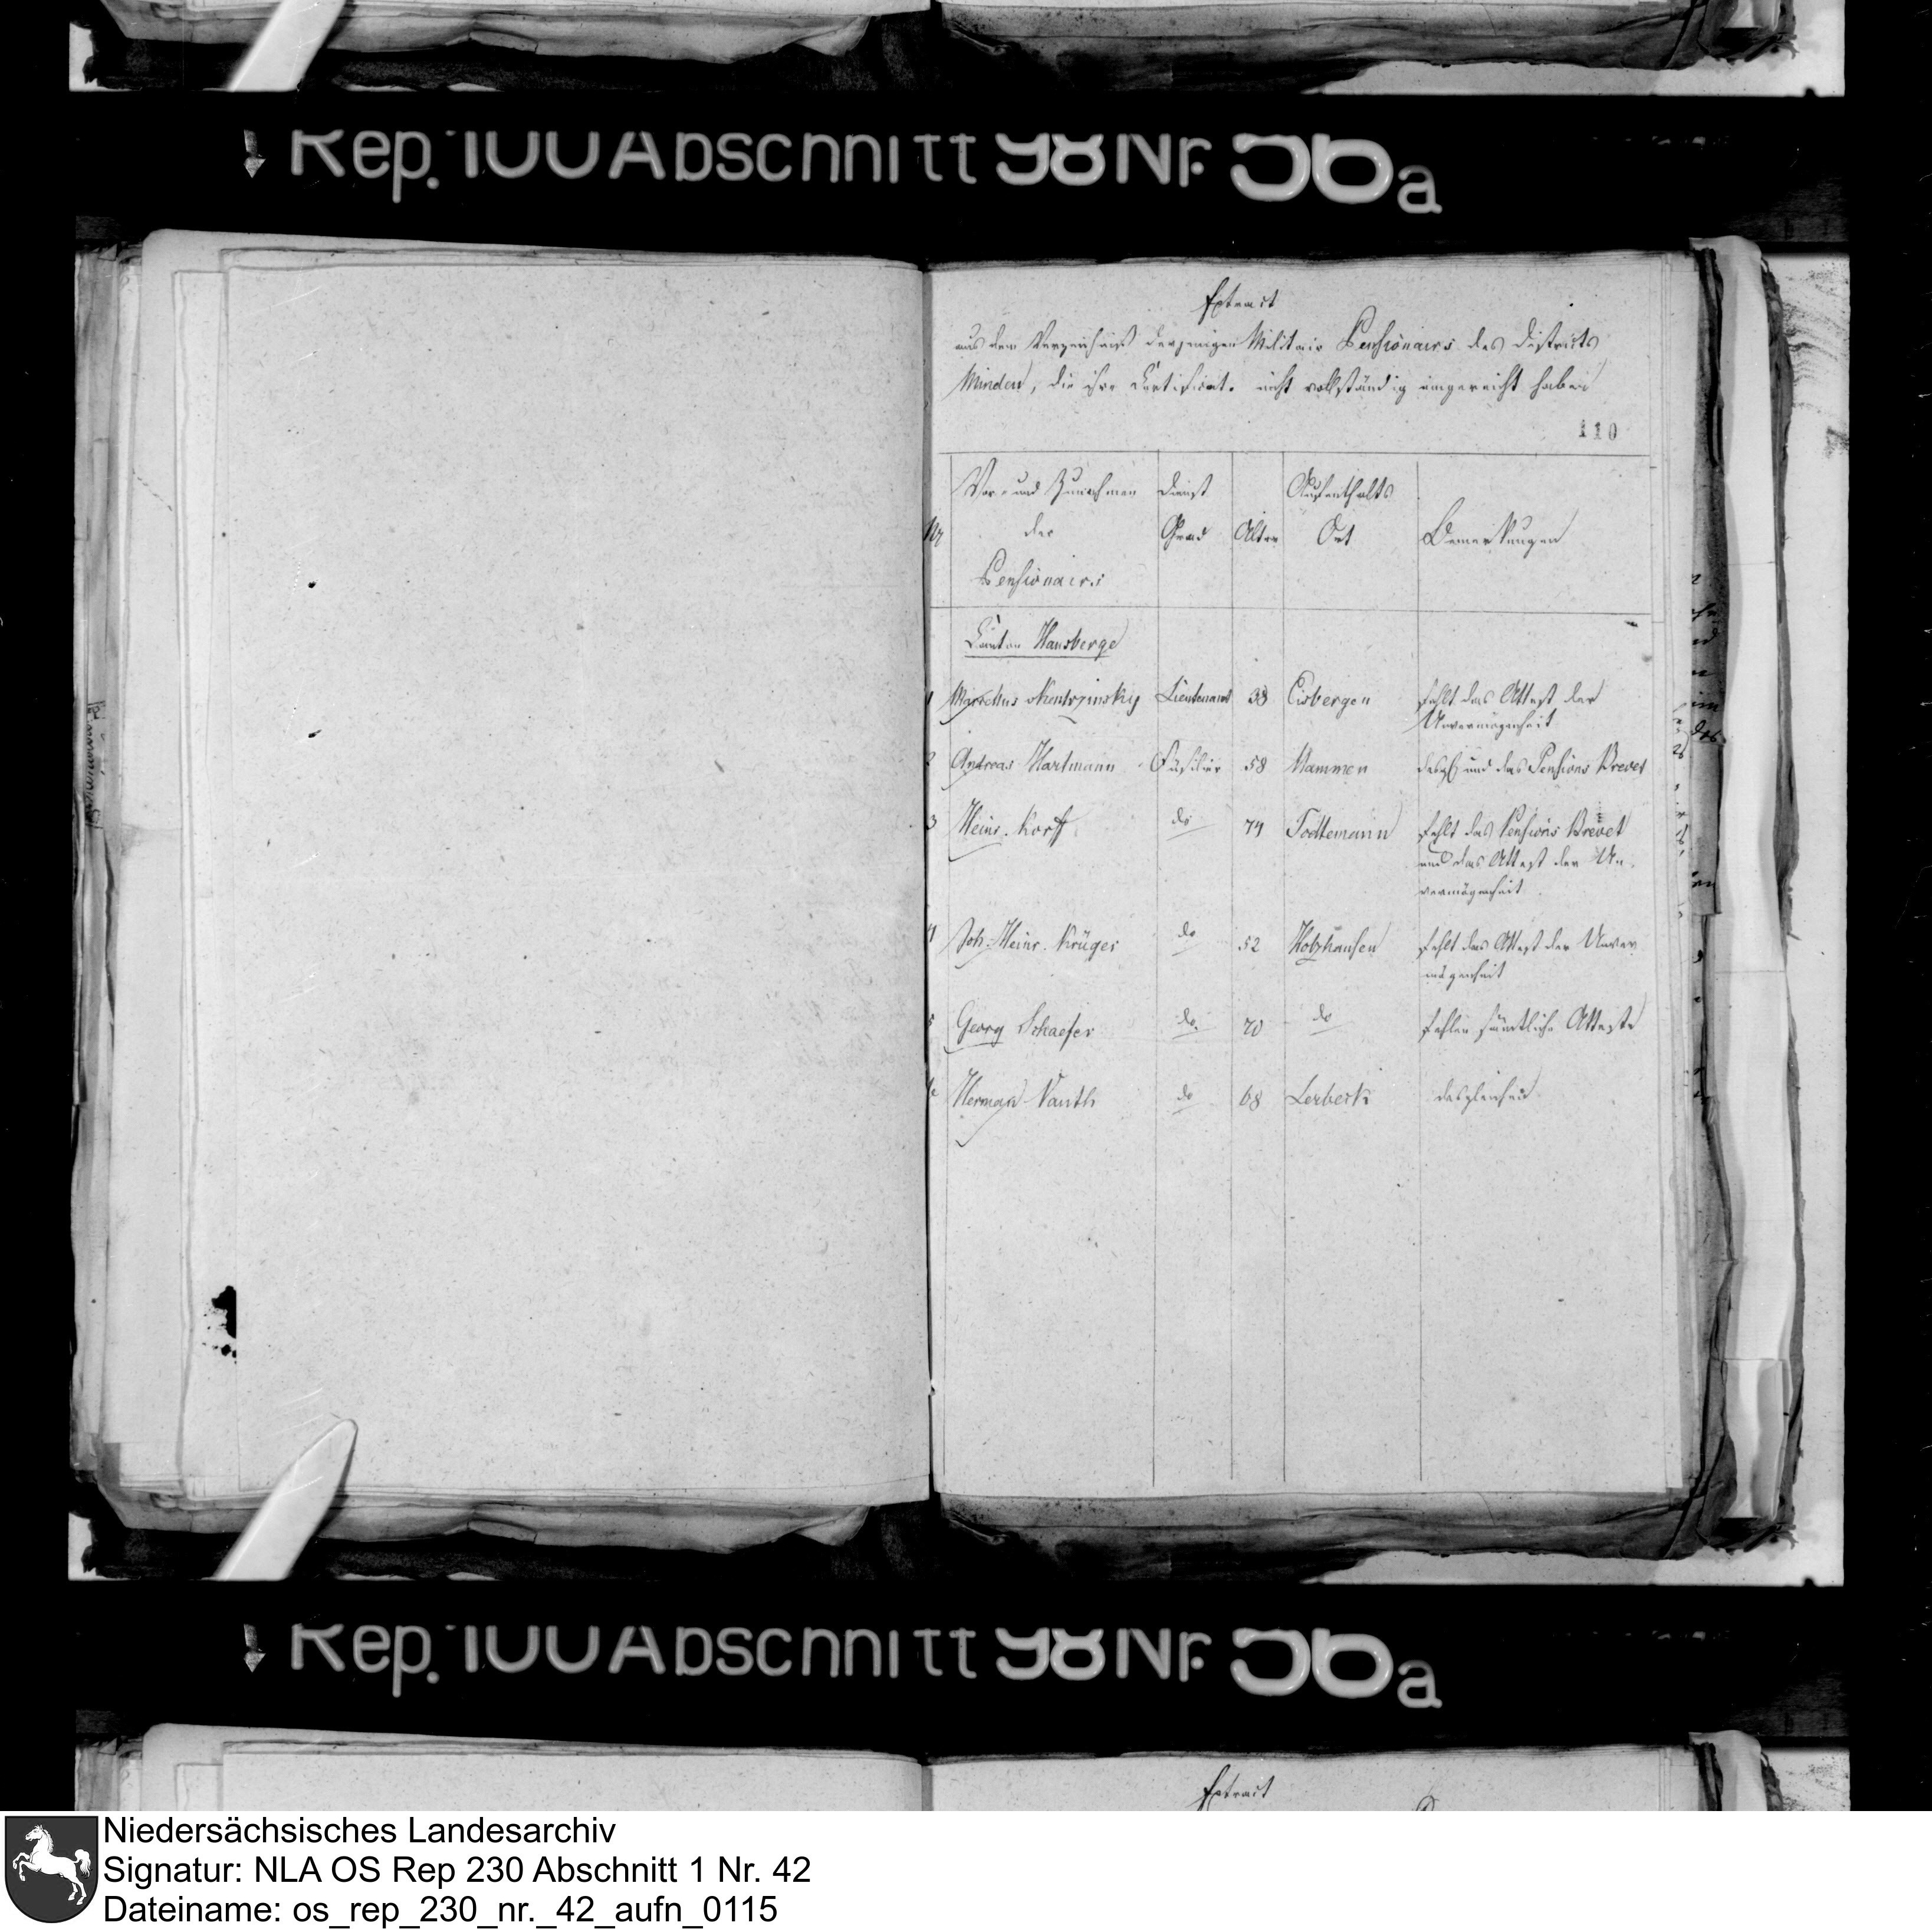 Rep. 100 Abschnitt 98 Nr. 56a
Extract
aus dem Verzeichniß derjenigen Militair Pensionairs des Districts
Minden, die ihre Certificat. nicht vollständig eingereicht haben
110
Nr
Vor- und Zunahmen
der
Pensionairs
Dienst
Grad
Alter
Aufenthalts
Ort
Bemerkungen
Canton Hausberge
1 Lieutenant 38 Eisbergen fehlt das Attest der
Unvermögenheit
2 Andreas Hartmann Füsilier 58 und das Pensions Brevet
3 Heinr. Korff do 74 Todtemann fehlt das Pensions Brevet
und das Attest der Un-
vermögenheit
4 Joh. Heinr. Krüger do 52 Holzhausen fehlt das Attest der Unver
mögenheit
5 Georg Schaefer do. 70 do fehlen sämtliche Atteste
6 Herman Vauth do 68 Lerbeck desgleichen
Rep. 100 Abschnitt 98 Nr. 56a
Extract
Niedersächsisches Landesarchiv
Signatur: NLA OS Rep 230 Abschnitt 1 Nr. 42
Dateiname: os_rep_230_nr._42_aufn_0115